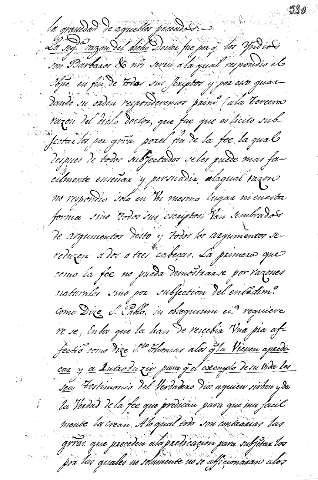 330
la gravedad de aquellos pecados.
La segª razon del dicho Doctor fue por q̃ los Yndios
son Barbaros & nõs serui a la qual respondio el s
Obpo en fin de todos sus scriptos y por eso guar-
dando su orden responderemos primº a la tercera
razon del dicho doctor, que fue que es licito sub-
jectarlos por guerra por el fin de la fee, la qual
despues de todos subjectados se les puede mas fa-
cilmente enseñar y persuadir a la qual razon
no respondio solo en un mesmo lugar ni en cierta
forma sino todos sus scriptos van sembrados
de argumentos desto y todos los argumentos se
reduzen a dos o tres cabeças. La primera que
como la fee no pueda demonstrarse por razones
naturales sino por subjection del entendimº
como Dize S. Pablo, in obsequium xi requiere
re se, en los que la han de recebir una pia af-
fectiõ como dize Sto Thomas a los q̃ la vienen a predi-
car y a enseñar, para q̃ el exemplo de su vida les
sea testimonio del verdadero dios a quien siruen y de
la verdad de la fee que predican para que mas facil-
mente la crean. A lo qual son contrarias las
gras que preceden a la predicacion para subjetarlos
por las quales no solamente no se afficionaran a los